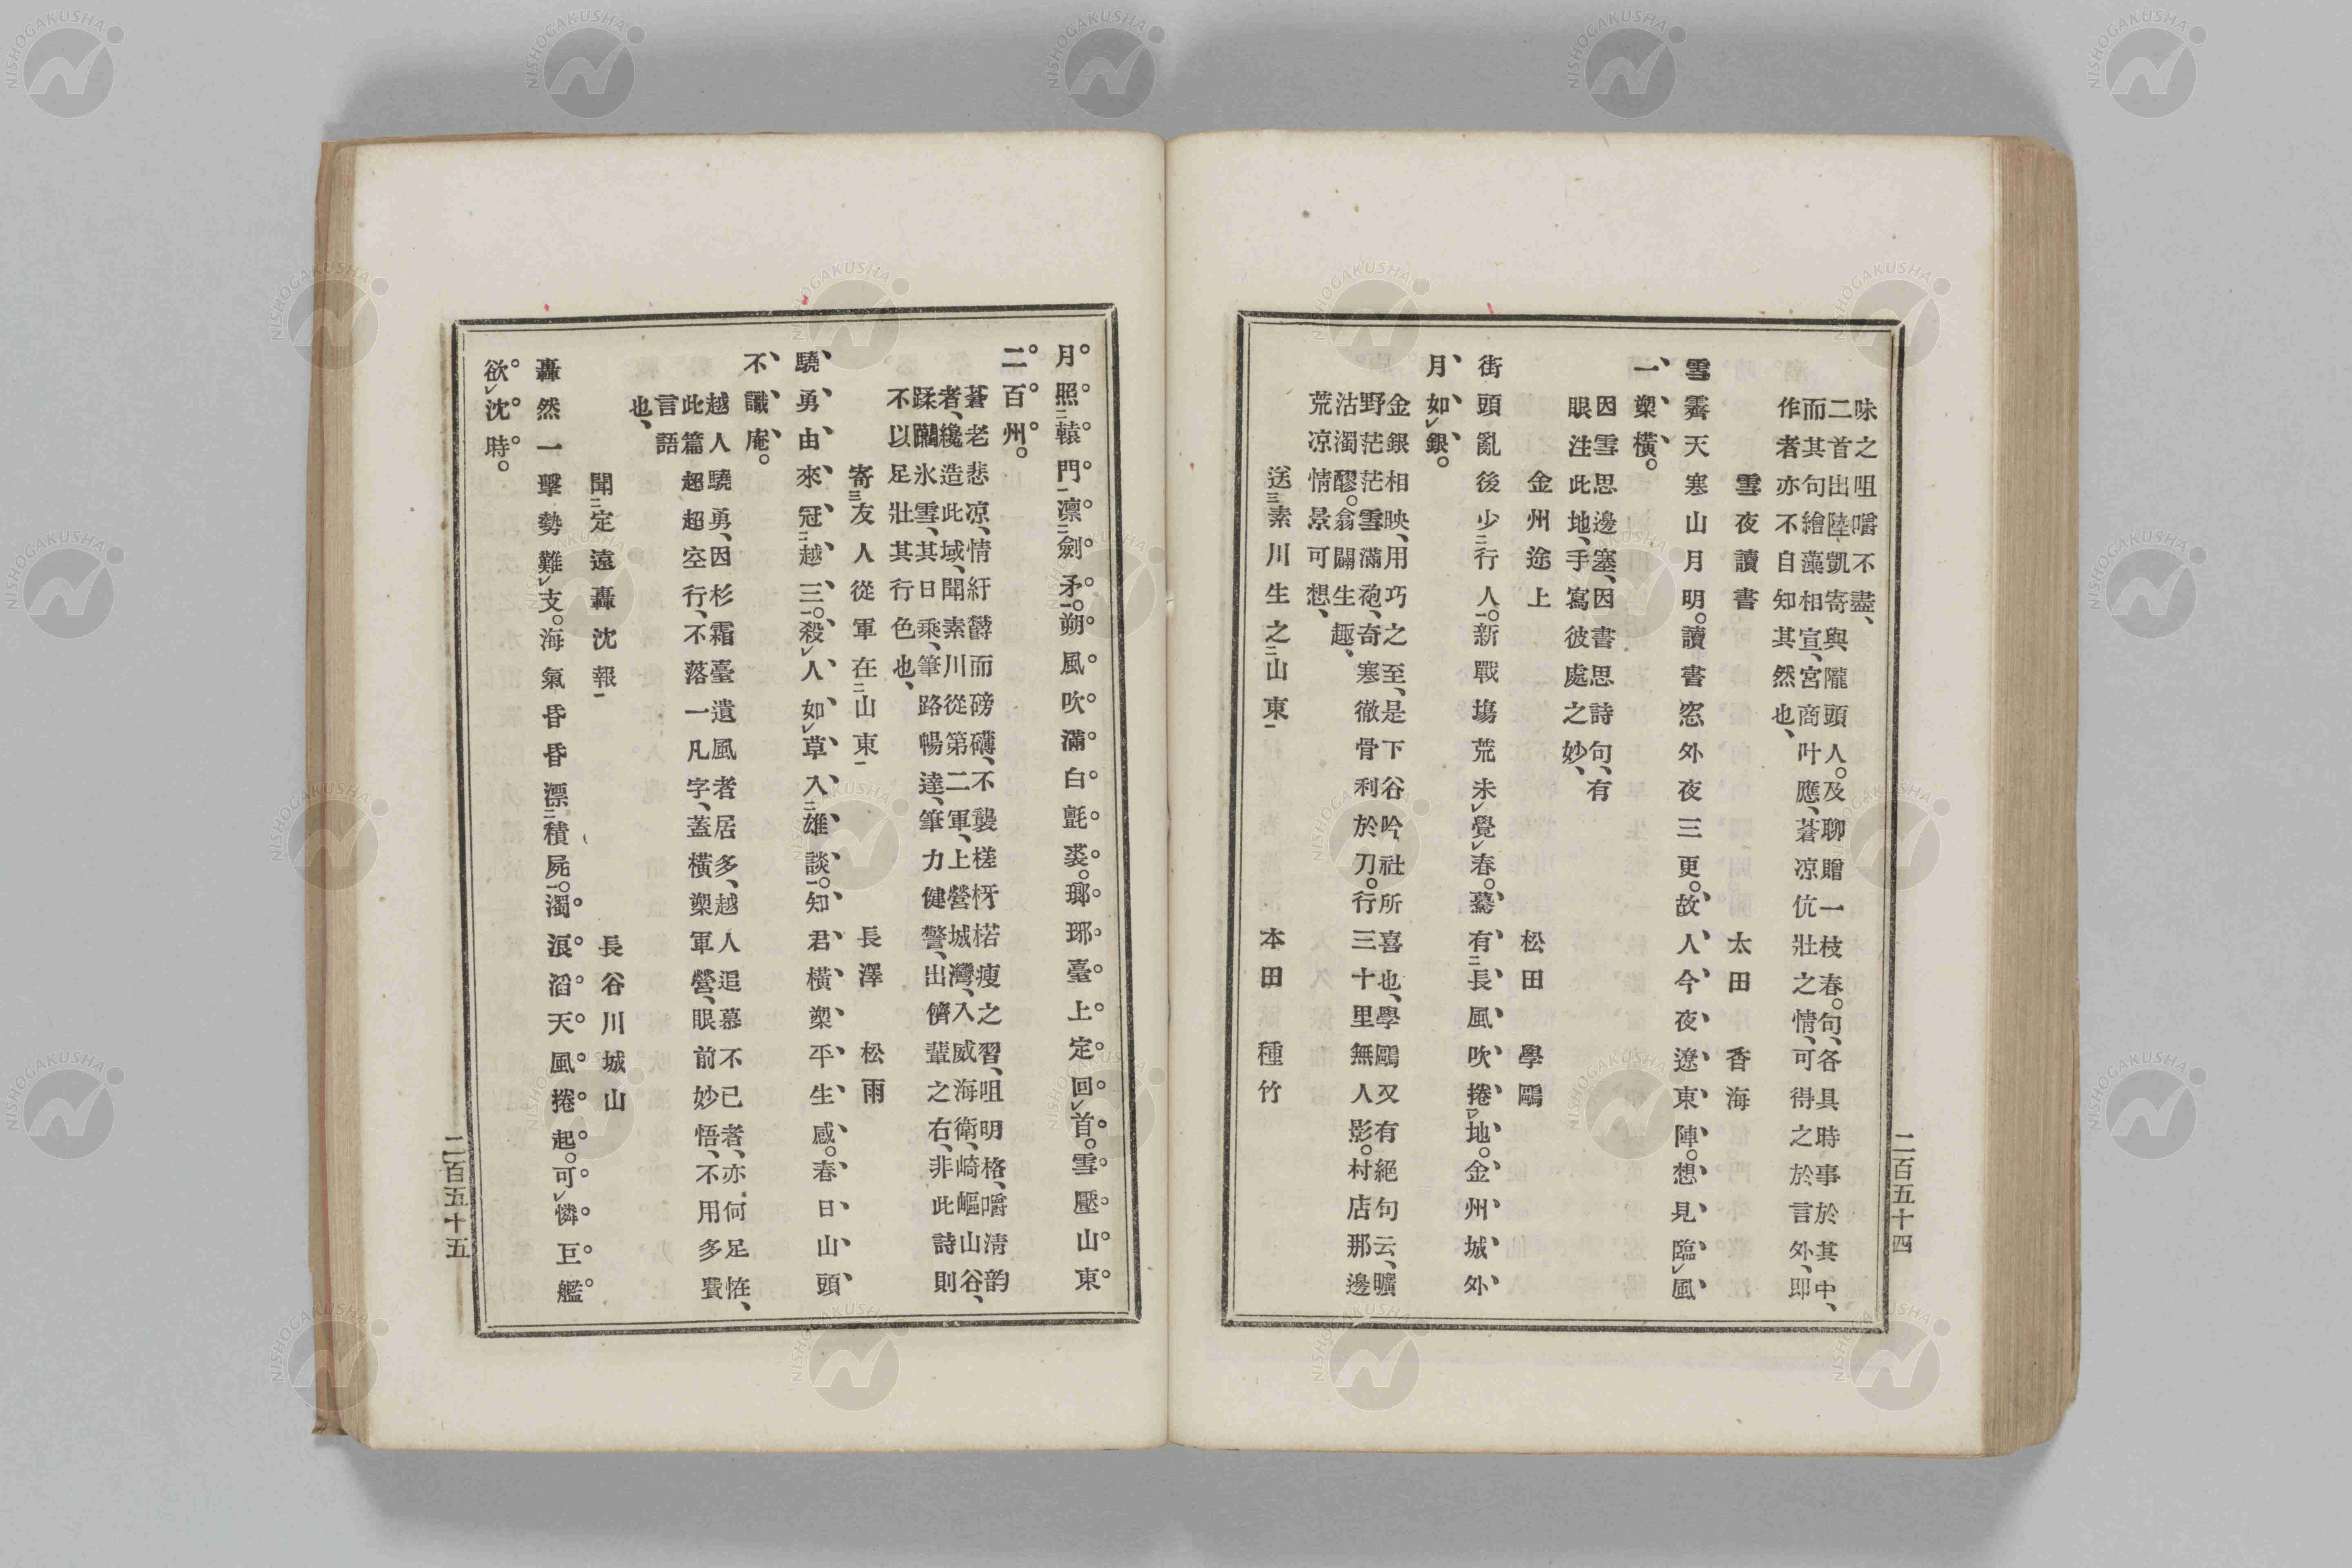 味之咀嚼不盡、
二首出陸凱寄與隴頭人。及聊贈一枝春。句、各具時事於其中、
而其句繪藻相宣、宮商叶應、蒼凉伉壯之情、可得之於言外、即
作者亦不自知其然也、
雪夜讀書 太田香海
雪霽天寒山月明。讀書窓外夜三更。故人今夜遼東陣。想見臨風
一槊橫。
因雪思邊塞、因書思詩句、有
眼注此地、手寫彼處之妙、
金州途上 松田學鷗
街頭亂後少行人。新戰塲荒未覺春。驀有長風吹捲地。金州城外
月如銀。
金銀相映、用巧之至、是下谷吟社所喜也、學鷗又有絕句云、曠
野茫茫雪滿砲、奇寒徹骨利於刀。行三十里無人影。村店那邊
沽濁醪。翁闢生趣、
荒凉情景可想、
送素川生之山東 本田種竹
二百五十四
月照轅門凛劍矛。朔風吹滿白氈裘。瑯琊臺上定回首。雪壓山東
二百州。
蒼老悲凉、情紆欝而磅礴、不襲槎枒楛瘦之習、咀明格、嚼淸韵
者、纔造此域、聞素川從第二軍、上營城灣、入威海衛、崎嶇山谷、
蹂躪氷雪、其日乘、筆路暢達、筆力健警、出儕輩之右、非此詩則
不以足壯其行色也、
寄友人從軍在山東 長澤松雨
驍勇由來冠越三。殺人如草入雄談。知君橫槊平生感。春日山頭
不識庵。
越人驍勇、因杉霜臺遺風者居多、越人追慕不已者、亦何足恠、
此篇超超空行、不落一凡字、蓋橫槊軍營、眼前妙悟、不用多費
言語
也、
聞定遠轟沈報 長谷川城山
轟然一擊勢難支。海氣昏昏漂積屍。濁浪滔天風捲起。可憐巨艦
欲沈時。
二百五十五
NISHOGAKUSHA